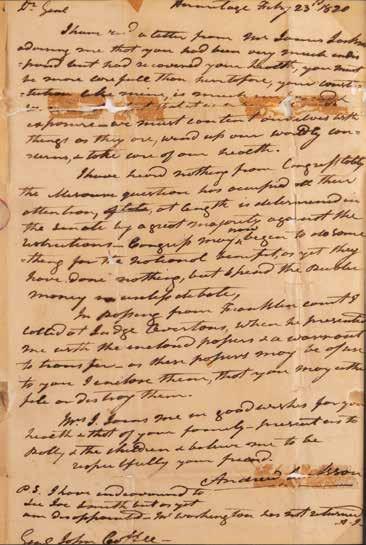 Dr. Genl Hermitage Feby 23rd 1820
I have recd a letter from Mr James Jackson
advising me that you had been very much indis
posed but had recovered your health, you must
be more carefull than heretofore, your consti-
tution like mine, is much
exposure we must content ourselves with
things as they are, wind up our worldly con-
cerns, & take care of our health.
I have heard nothing from Congress lately
the Missouri question has occupied all their
attention, of late, at length is determined in
the Senate by a great majority against the
restrictions— Congress may now begin to do some
thing for the national benefit, as yet they
have done nothing, but spend the public
money in useless debate,
In Passing from Franklin court I
called at Judge Overtons, when he presented
me with the inclosed papers & a warrant
to transfer— as these papers may be of use
to you I enclose them, that you may either
file or destroy them.
Mrs. J. Joins me in good wishes for your
health & that of your family— present us to
Polly, & the children & believe me to be
respectfully your friend.
Andrew Jackson
P.S. I have endeavoured to
see but as yet
am disappointed— Mr Washington has not returned
A.J.
Genl John Coffee—